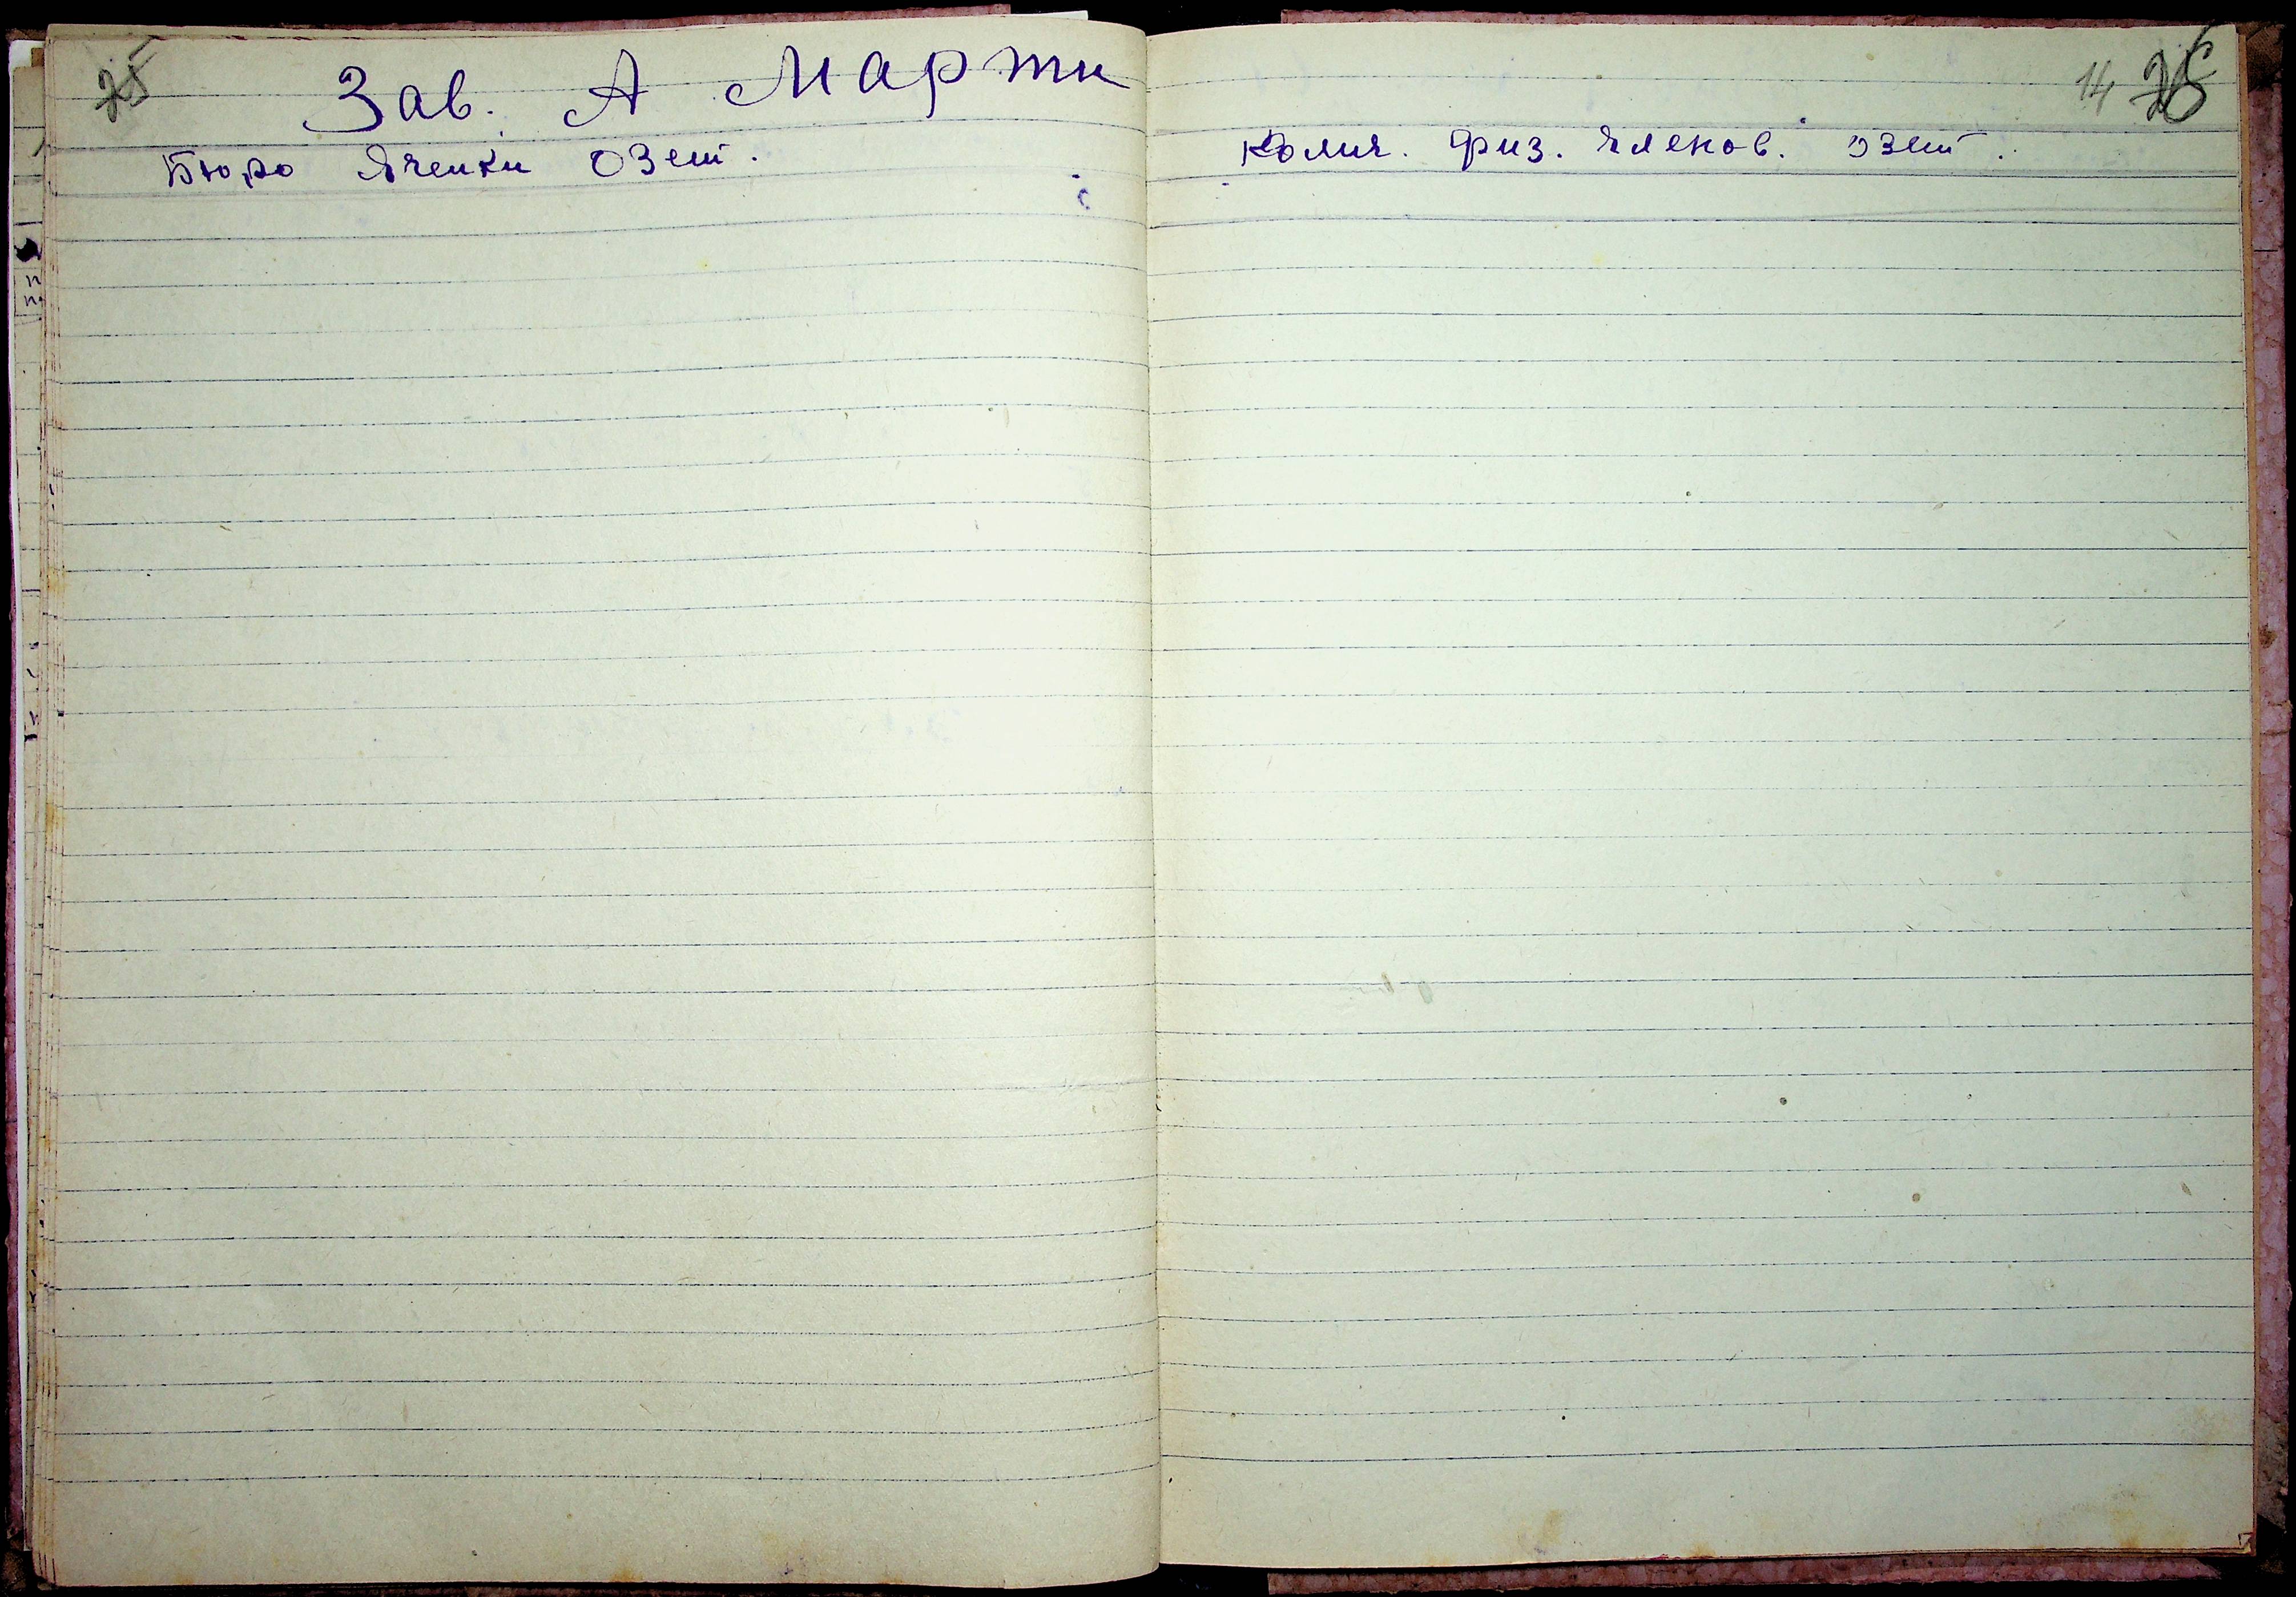 25
Зав. А Марти
Бюро Ячейки ОЗет.
14
Колич. физ. членов. озет.